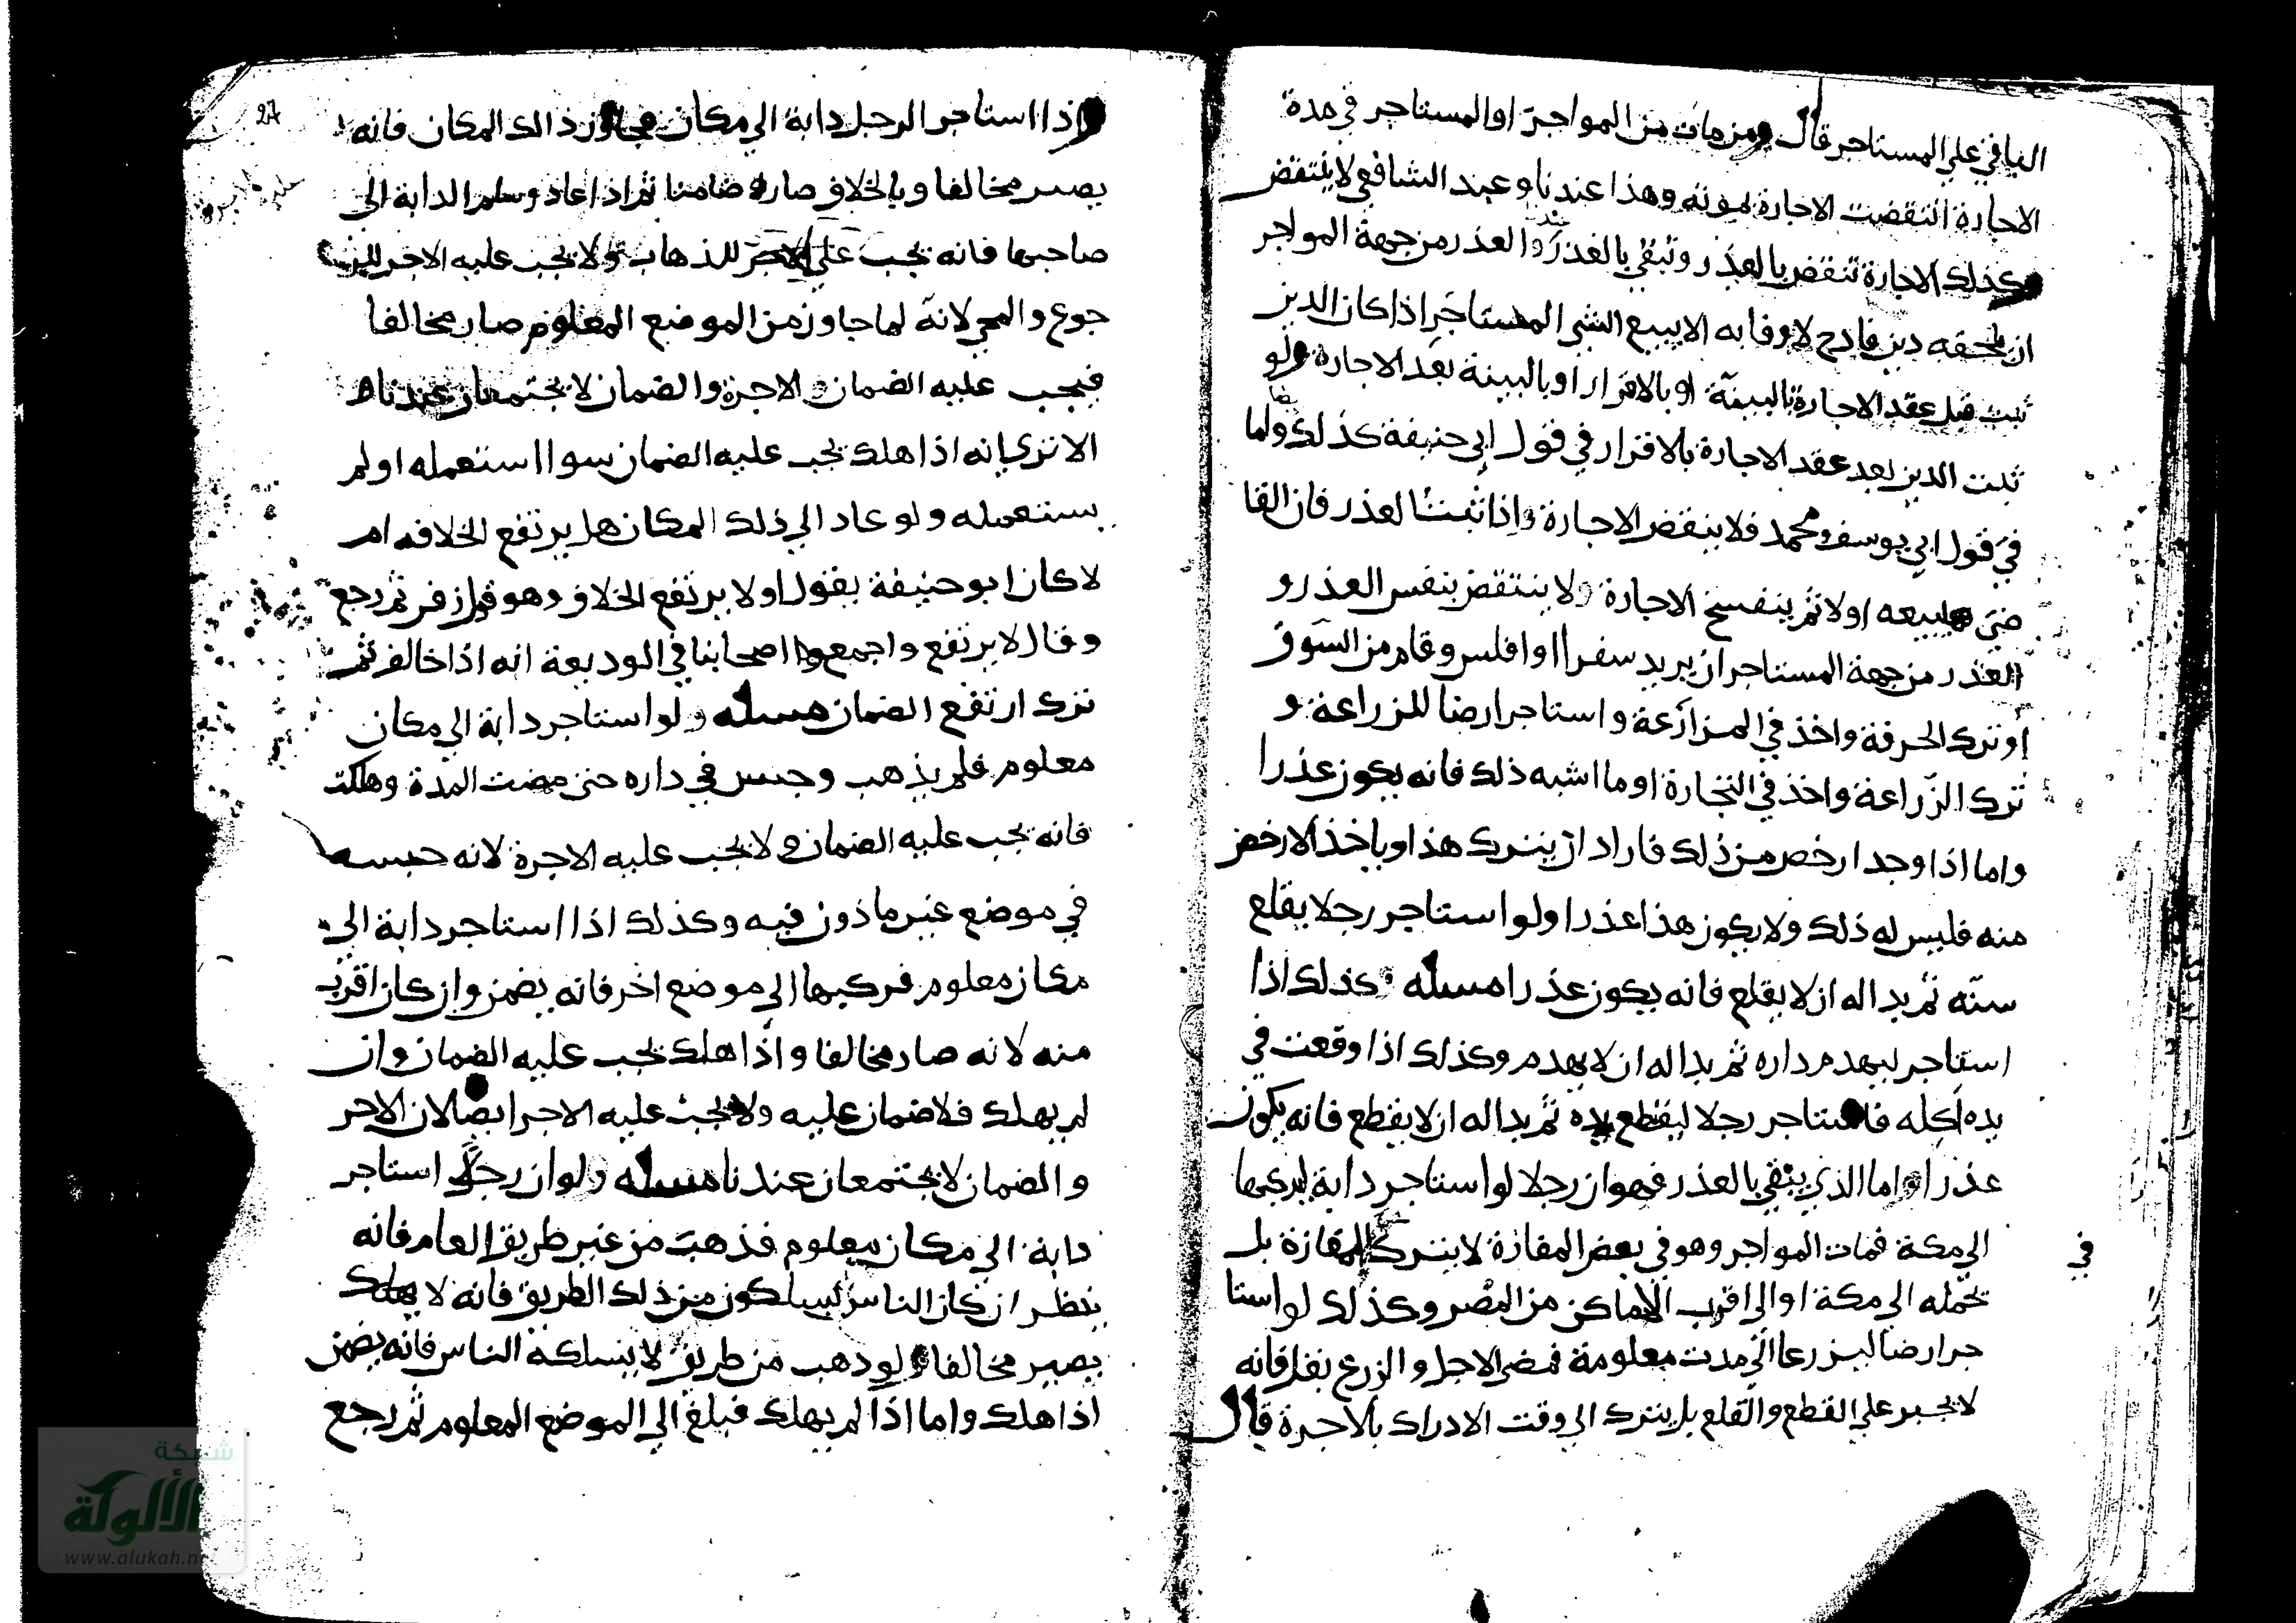 الباقي علي المستاجر قال ومن مات من المواجر او المستاجر في مدة
الاجارة انتقضت الاجارة بموته وهذا عندنا وعند الشافعي لا ينتقض
وكذلك الاجارة تنقض بالعذر وتبقي بالعذر عندنا والعذر من جهة المواجر
ان يلحقه دين فادح لا وفا به الا ببيع الشي المستاجر اذا كان الدين
ثبت قبل عقد الاجارة بالبينة او بالاقرار او بالبينة بعد الاجارة ولو
ثبت الدين بعد عقد الاجارة بالاقرار في قول ابي حنيفة كذلك واما
في قول ابي يوسف ومحمد فلا ينقض الاجارة واذا ثبت العذر فان القا
ضي يبيعه اولا ثم ينفسخ الاجارة ولا ينتقض بنفس العذر و
العذر من جهة المستاجر ان يريد سفرا او افلس وقام من السوق
او ترك الحرفة واخذ في المزارعة واستاجر ارضا للزراعة و
ترك الزراعة واخذ في التجارة او ما اشبه ذلك فانه يكون عذرا
واما اذا وجد ارخص من ذلك فاراد ان يترك هذا وياخذ الارخص
منه فليس له ذلك ولا يكون هذا عذرا ولو استاجر رجلا يقلع
سنه ثم بدا له ان لا يقلع فانه يكون عذرا مسله وكذلك اذا
استاجر ليهدم داره ثم بدا له ان لا يهدم وكذلك اذا وقعت في
يده اكله فاستاجر رجلا ليقطع يده ثم بدا له ان لا يقطع فانه يكون
عذرا واما الذي يبقي بالعذر فهو ان رجلا لو استاجر دابة ليركبها
الي مكة فمات المواجر وهو في بعض المفازة لا يترك المفازة بل
في
يحمله الي مكة او الي اقرب الاماكن من المصر وكذلك لو استا
جر ارضا ليزرعا الي مدت معلومة فمضي الاجل والزرع بقل فانه
لا يجبر علي القطع والقلع بل يترك الي وقت الادراك بالاجرة قال
27
واذا استاجر الرجل دابة الي مكان فجاوز ذالك المكان فانه
يصير مخالفا وبالخلاف صار ضامنا ثم اذا عاد وسلم الدابة الي
صاحبها فانه يجب علي الاجر للذهاب ولا يجب عليه الاجر للر
جوع والمجي لانه لما جاوز من الموضع المعلوم صار مخالفا
فيجب عليه الضمان والاجرة والضمان لا يجتمعان عندنا
الا تري انه اذا هلك يجب عليه الضمان سوا استعمله او لم
يستعمله ولو عاد الي ذلك المكان هل يرتفع الخلافه ام
لا كان ابو حنيفة يقول اولا يرتفع الخلاف وهو قول زفر ثم رجع
وقال لا يرتفع واجمعوا اصحابنا في الوديعة انه اذا خالف ثم
ترك ارتفع الضمان مسله ولو استاجر دابة الي مكان
معلوم فلم يذهب وحبس في داره حتي مضت المدة وهلكت
فانه يجب عليه الضمان ولا يجب عليه الاجرة لانه حبسه
في موضع غير ماذون فيه وكذلك اذا استاجر دابة الي
مكان معلوم فركبها الي موضع اخر فانه يضمن وان كان اقرب
منه لانه صار مخالفا واذا هلك يجب عليه الضمان وان
لم يهلك فلا ضمان عليه ولا يجب عليه الاجر ايضا لان الاجر
والضمان لا يجتمعان عندنا مسله ولو ان رجلا استاجر
دابة الي مكان معلوم فذهب من غير طريق العام فانه
ينظر ان كان الناس يسلكون من ذلك الطريق فانه لا يهلك
يصير مخالفا ولو ذهب من طريق لا يسلكه الناس فانه يضمن
اذا هلك واما اذا لم يهلك فبلغ الي الموضع المعلوم ثم رجع
شبكة
الألوكة
www.alukah.n